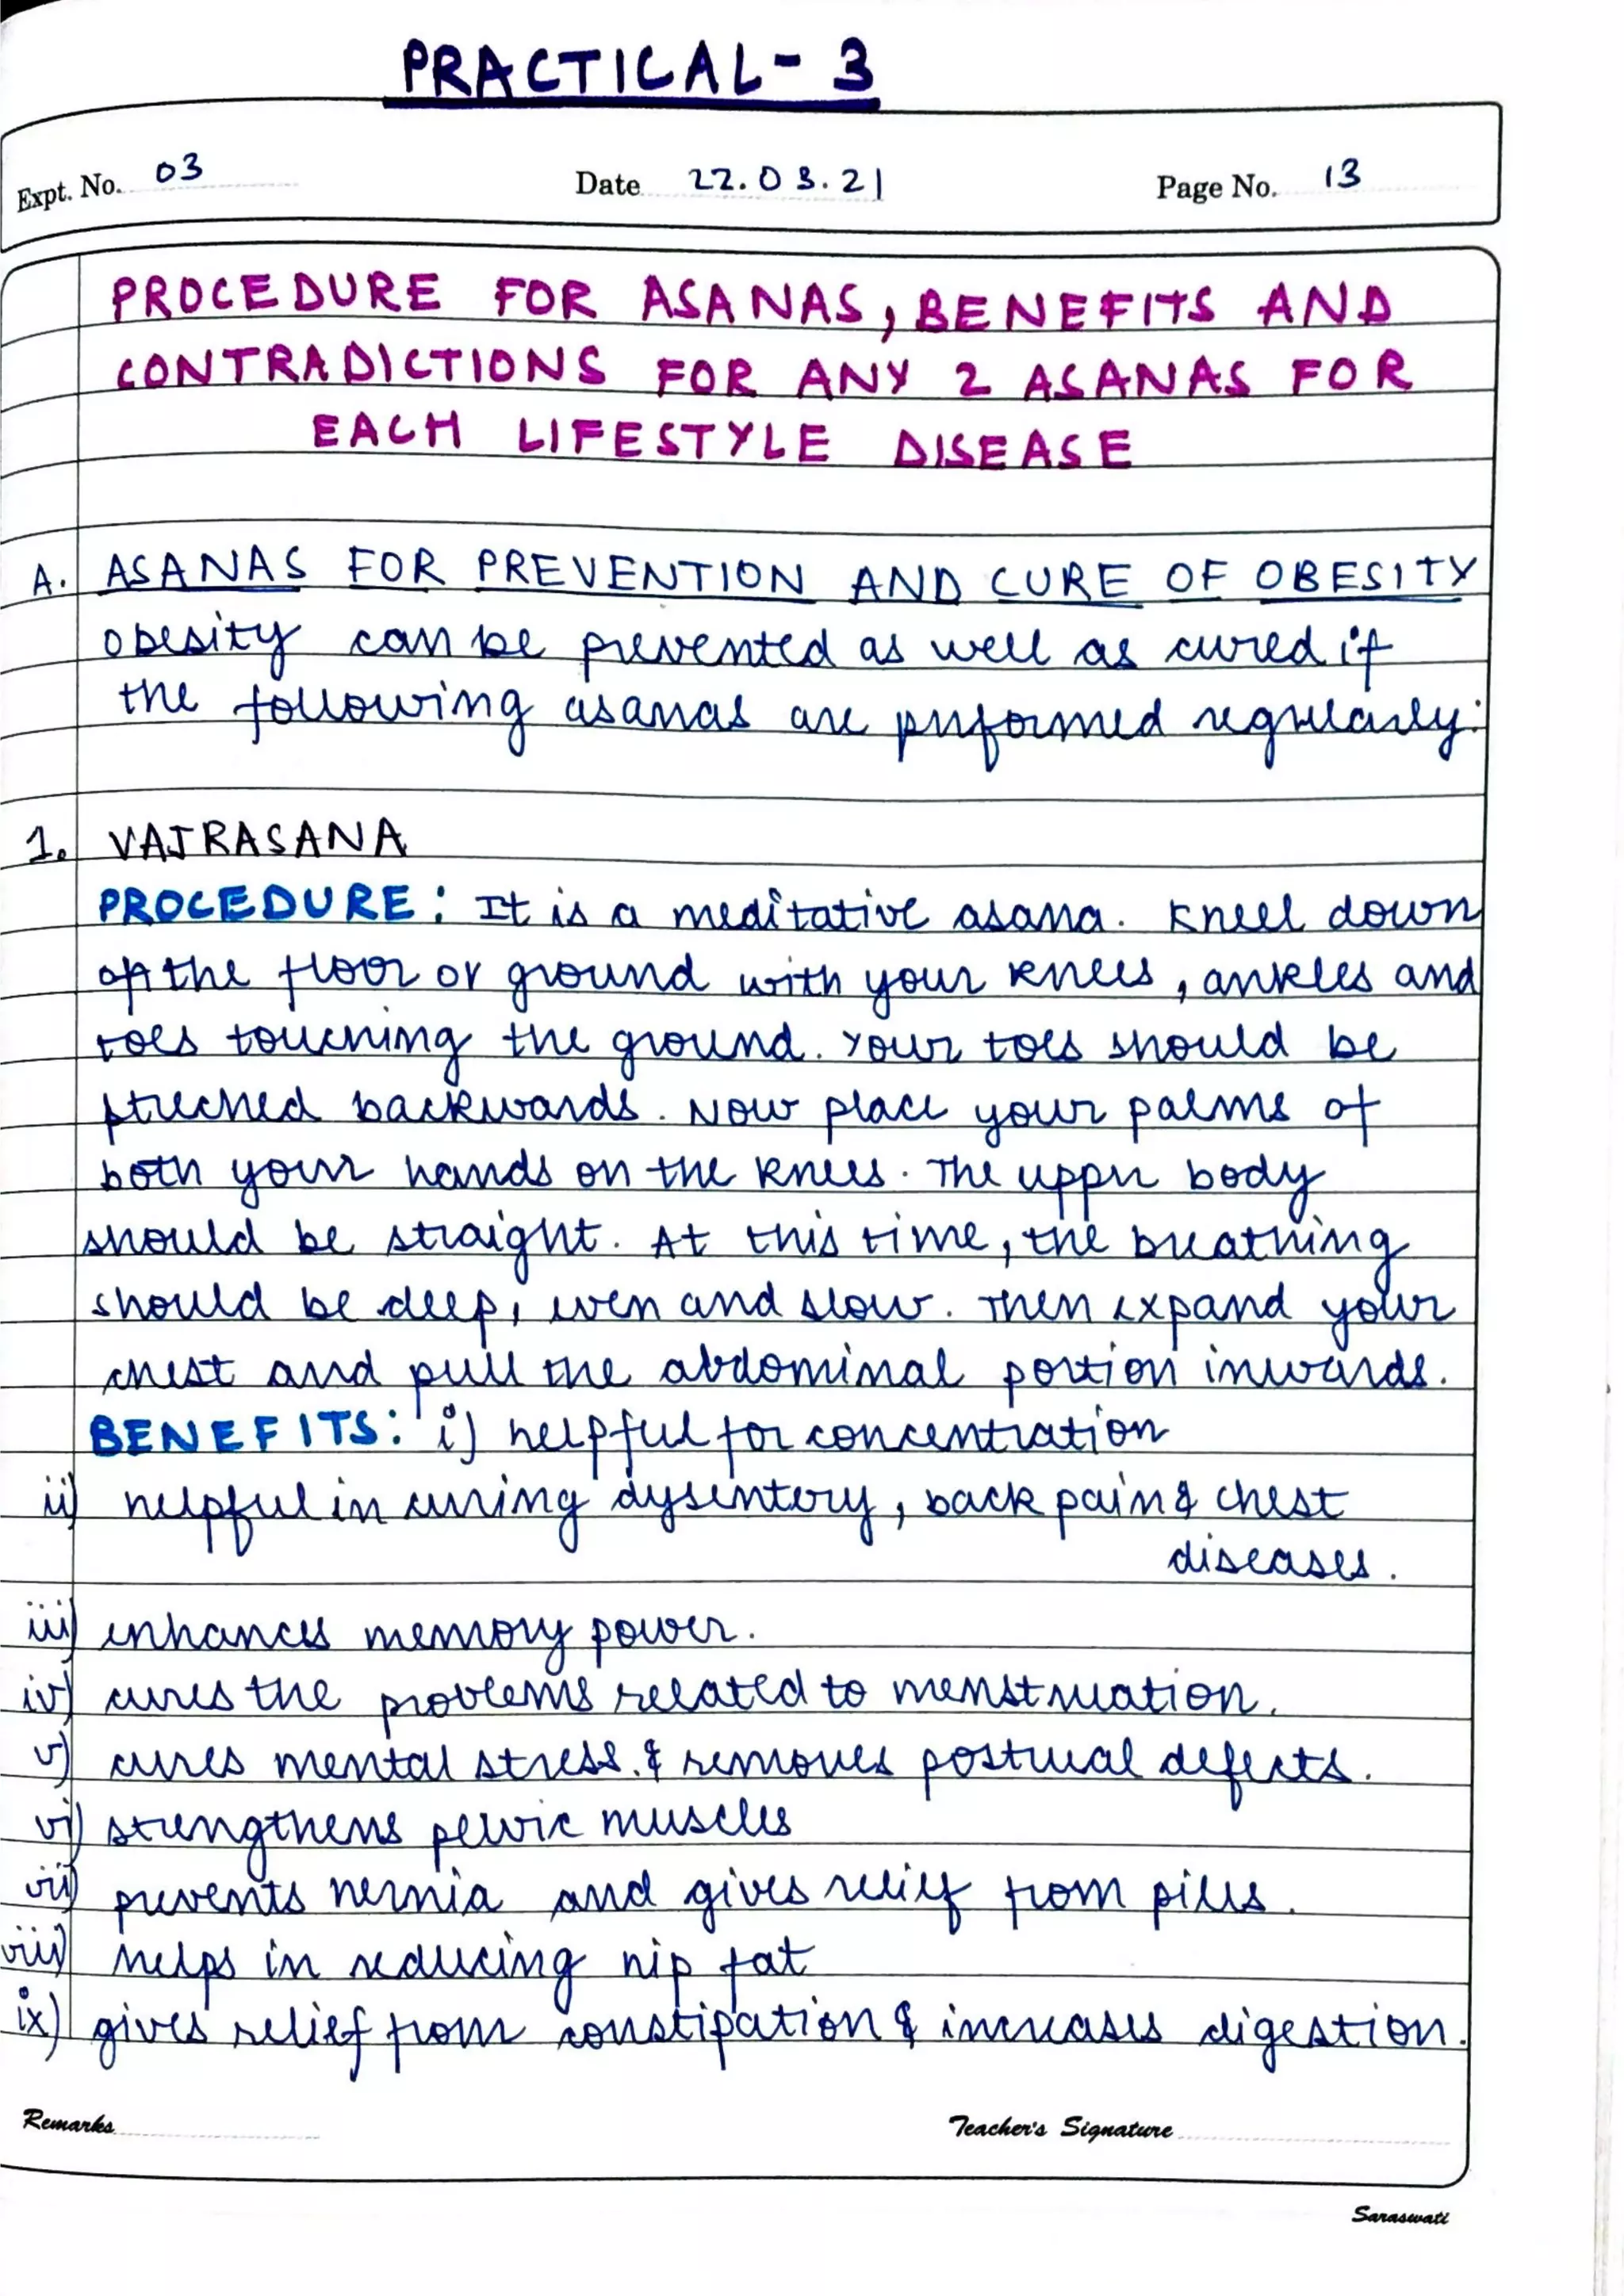 PRACTICAL- 3
Expt. No. 03 Date 22.03.21 Page No. 13
PROCEDURE FOR ASANAS, BENEFITS AND
CONTRADICTIONS FOR ANY 2 ASANAS FOR
EACH LIFESTYLE DISEASE
A. ASANAS FOR PREVENTION AND CURE OF OBESITY
obesity can be prevented as well as cured if
the following asanas are performed regularly:
1. VAJRASANA
PROCEDURE: It is a meditative asana. Kneel down
on the floor or ground with your knees, ankles and
toes touching the ground. Your toes should be
streched backwards. Now place your palms of
both your hands on the knees. The upper body
should be straight. At this time, the breathing
should be deep, even and slow. Then expand your
chest and pull the abdominal portion inwards.
BENEFITS: i) helpful for concentration
ii) helpful in curing dysentory, back pain & chest
diseases.
iii) enhances memory power.
iv) cures the problems related to menstruation.
v) cures mental stress. & removes postural defects.
vi) strengthens pelvic muscles
vii) prevents hernia and gives relief from piles.
viii) helps in reducing hip fat
ix) gives relief from constipation & increases digestion.
Remarks Teacher's Signature
Saraswati